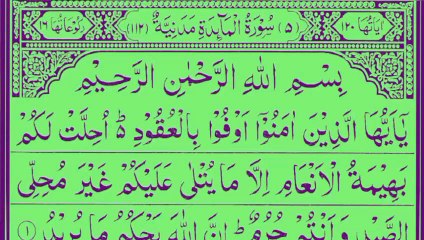 اٰيَاتُهَا ١٢٠ (٥) سُوْرَةُ الْمَآئِدَةِ مَدَنِيَّةٌ (١١٢) رُكُوْعَاتُهَا ١٦
بِسْمِ اللّٰهِ الرَّحْمٰنِ الرَّحِيْمِ
يٰۤاَيُّهَا الَّذِيْنَ اٰمَنُوْۤا اَوْفُوْا بِالْعُقُوْدِ ؕ اُحِلَّتْ لَكُمْ
بَهِيْمَةُ الْاَنْعَامِ اِلَّا مَا يُتْلٰى عَلَيْكُمْ غَيْرَ مُحِلِّى
الصَّيْدِ وَاَنْتُمْ حُرُمٌ ؕ اِنَّ اللّٰهَ يَحْكُمُ مَا يُرِيْدُ ١